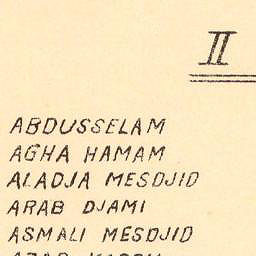 II
ABDUSSELAM
AGHA HAMAM
ALADJA MESDJID
ARAB DJAMI
ASMALI MESDJID